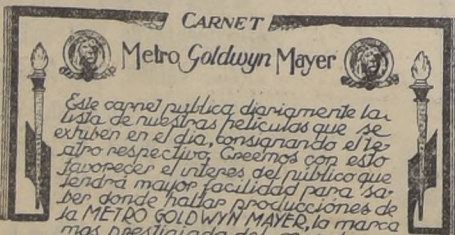 CARNET
Metro Goldwyn Mayer
Este carnet publica diariamente la
lista de nuestras películas que se
exhiben en el día, consignando el te-
atro respectivo. Creemos con esto
favorecer el interes del público que
tendrá mayor facilidad para sa-
ber donde hallar producciones de
la METRO GOLDWYN MAYER, la marca
mas prestigiada del